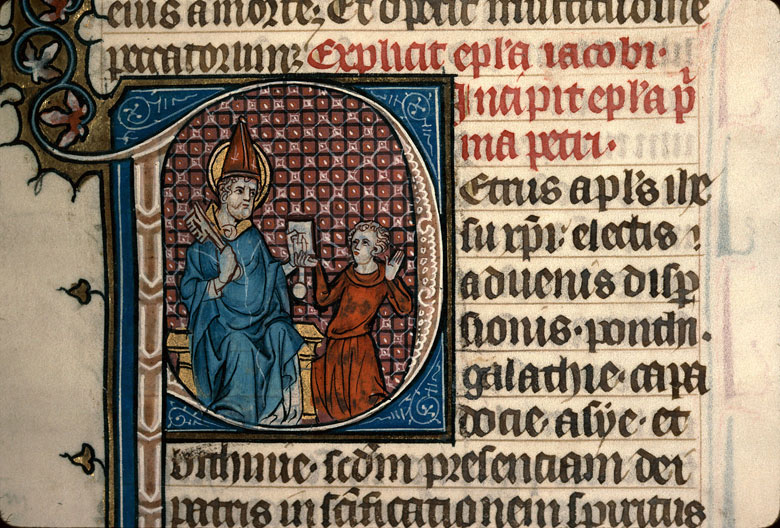 eius a morte; Et operit multitudine
peccatorium; Explicit epl'a iacobi.
Incipit epl'a p̄
ma petri.
Etrus apl's ihe
su xp̄i. electis
aduenis disp̄
sionis. ponthi.
galathie. capa
docie. asye. et
bithinie. sc̄dm presenciam dei
patris in sc̄ificationem spiritus